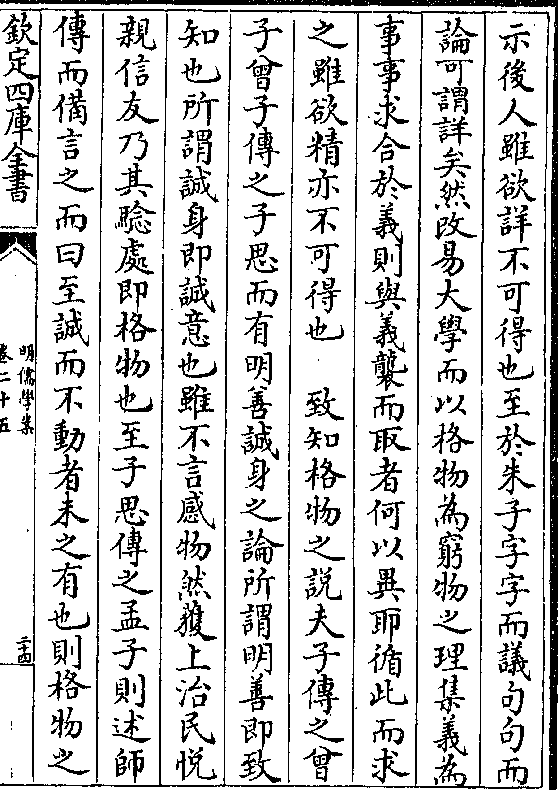 示後人雖欲詳不可得也至於朱子字字而議句句而
論可謂詳矣然改易大學而以格物為窮物之理集義為
事事求合於義則與義襲而取者何以異耶循此而求
之雖欲精亦不可得也　致知格物之説夫子傳之曾
子曾子傳之子思而有明善誠身之論所謂明善即致
知也所謂誠身即誠意也雖不言感物然獲上治民悦
親信友乃其驗處即格物也至子思傳之孟子則述師
傳而備言之而曰至誠而不動者未之有也則格物之
欽定四庫全書
明儒學案
卷二十五
二十四